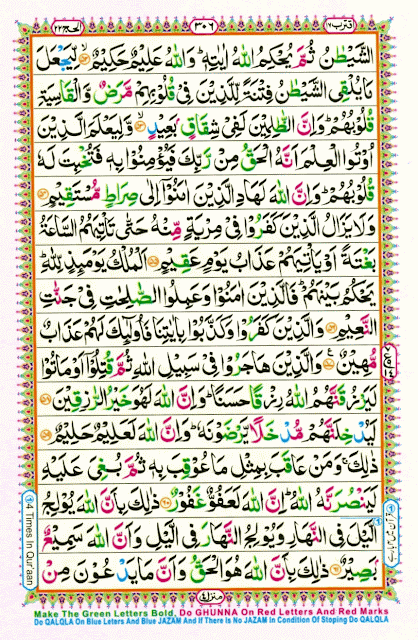 اقترب ١٧
٣٠٦
الحج ٢٢
الشَّيْطٰنُ ثُمَّ يُحْكِمُ اللّٰهُ اٰيٰتِهٖ ؕ وَاللّٰهُ عَلِيْمٌ حَكِيْمٌ ۙ﴿۵۲﴾ لِّيَجْعَلَ
مَا يُلْقِى الشَّيْطٰنُ فِتْنَةً لِّلَّذِيْنَ فِىْ قُلُوْبِهِمْ مَّرَضٌ وَّالْقَاسِيَةِ
قُلُوْبُهُمْ ؕ وَاِنَّ الظّٰلِمِيْنَ لَفِىْ شِقَاقٍۢ بَعِيْدٍ ۙ﴿۵۳﴾ وَّلِيَعْلَمَ الَّذِيْنَ
اُوْتُوا الْعِلْمَ اَنَّهُ الْحَقُّ مِنْ رَّبِّكَ فَيُؤْمِنُوْا بِهٖ فَتُخْبِتَ لَهٗ
قُلُوْبُهُمْ ؕ وَاِنَّ اللّٰهَ لَهَادِ الَّذِيْنَ اٰمَنُوْۤا اِلٰى صِرَاطٍ مُّسْتَقِيْمٍ ﴿۵۴﴾
وَلَا يَزَالُ الَّذِيْنَ كَفَرُوْا فِىْ مِرْيَةٍ مِّنْهُ حَتّٰى تَاْتِيَهُمُ السَّاعَةُ
بَغْتَةً اَوْ يَاْتِيَهُمْ عَذَابُ يَوْمٍ عَقِيْمٍ ﴿۵۵﴾ اَلْمُلْكُ يَوْمَئِذٍ لِّلّٰهِ ؕ
يَحْكُمُ بَيْنَهُمْ ؕ فَالَّذِيْنَ اٰمَنُوْا وَعَمِلُوا الصّٰلِحٰتِ فِىْ جَنّٰتِ
النَّعِيْمِ ﴿۵۶﴾ وَالَّذِيْنَ كَفَرُوْا وَكَذَّبُوْا بِاٰيٰتِنَا فَاُولٰٓئِكَ لَهُمْ عَذَابٌ
مُّهِيْنٌ ﴿۵۷﴾ وَالَّذِيْنَ هَاجَرُوْا فِىْ سَبِيْلِ اللّٰهِ ثُمَّ قُتِلُوْۤا اَوْ مَاتُوْا
لَيَرْزُقَنَّهُمُ اللّٰهُ رِزْقًا حَسَنًا ؕ وَاِنَّ اللّٰهَ لَهُوَ خَيْرُ الرّٰزِقِيْنَ ﴿۵۸﴾
لَيُدْخِلَنَّهُمْ مُّدْخَلًا يَّرْضَوْنَهٗ ؕ وَاِنَّ اللّٰهَ لَعَلِيْمٌ حَلِيْمٌ ﴿۵۹﴾
ذٰلِكَ ۚ وَمَنْ عَاقَبَ بِمِثْلِ مَا عُوْقِبَ بِهٖ ثُمَّ بُغِىَ عَلَيْهِ
لَيَنْصُرَنَّهُ اللّٰهُ ؕ اِنَّ اللّٰهَ لَعَفُوٌّ غَفُوْرٌ ﴿۶۰﴾ ذٰلِكَ بِاَنَّ اللّٰهَ يُوْلِجُ
الَّيْلَ فِى النَّهَارِ وَيُوْلِجُ النَّهَارَ فِى الَّيْلِ وَاَنَّ اللّٰهَ سَمِيْعٌۢ
بَصِيْرٌ ﴿۶۱﴾ ذٰلِكَ بِاَنَّ اللّٰهَ هُوَ الْحَقُّ وَاَنَّ مَا يَدْعُوْنَ مِنْ
منزل ۴
14 Times In Qur'aan
Make The Green Letters Bold, Do GHUNNA On Red Letters And Red Marks
Do QALQLA On Blue Leters And Blue JAZAM And If There Is No JAZAM In Condition Of Stoping Do QALQLA